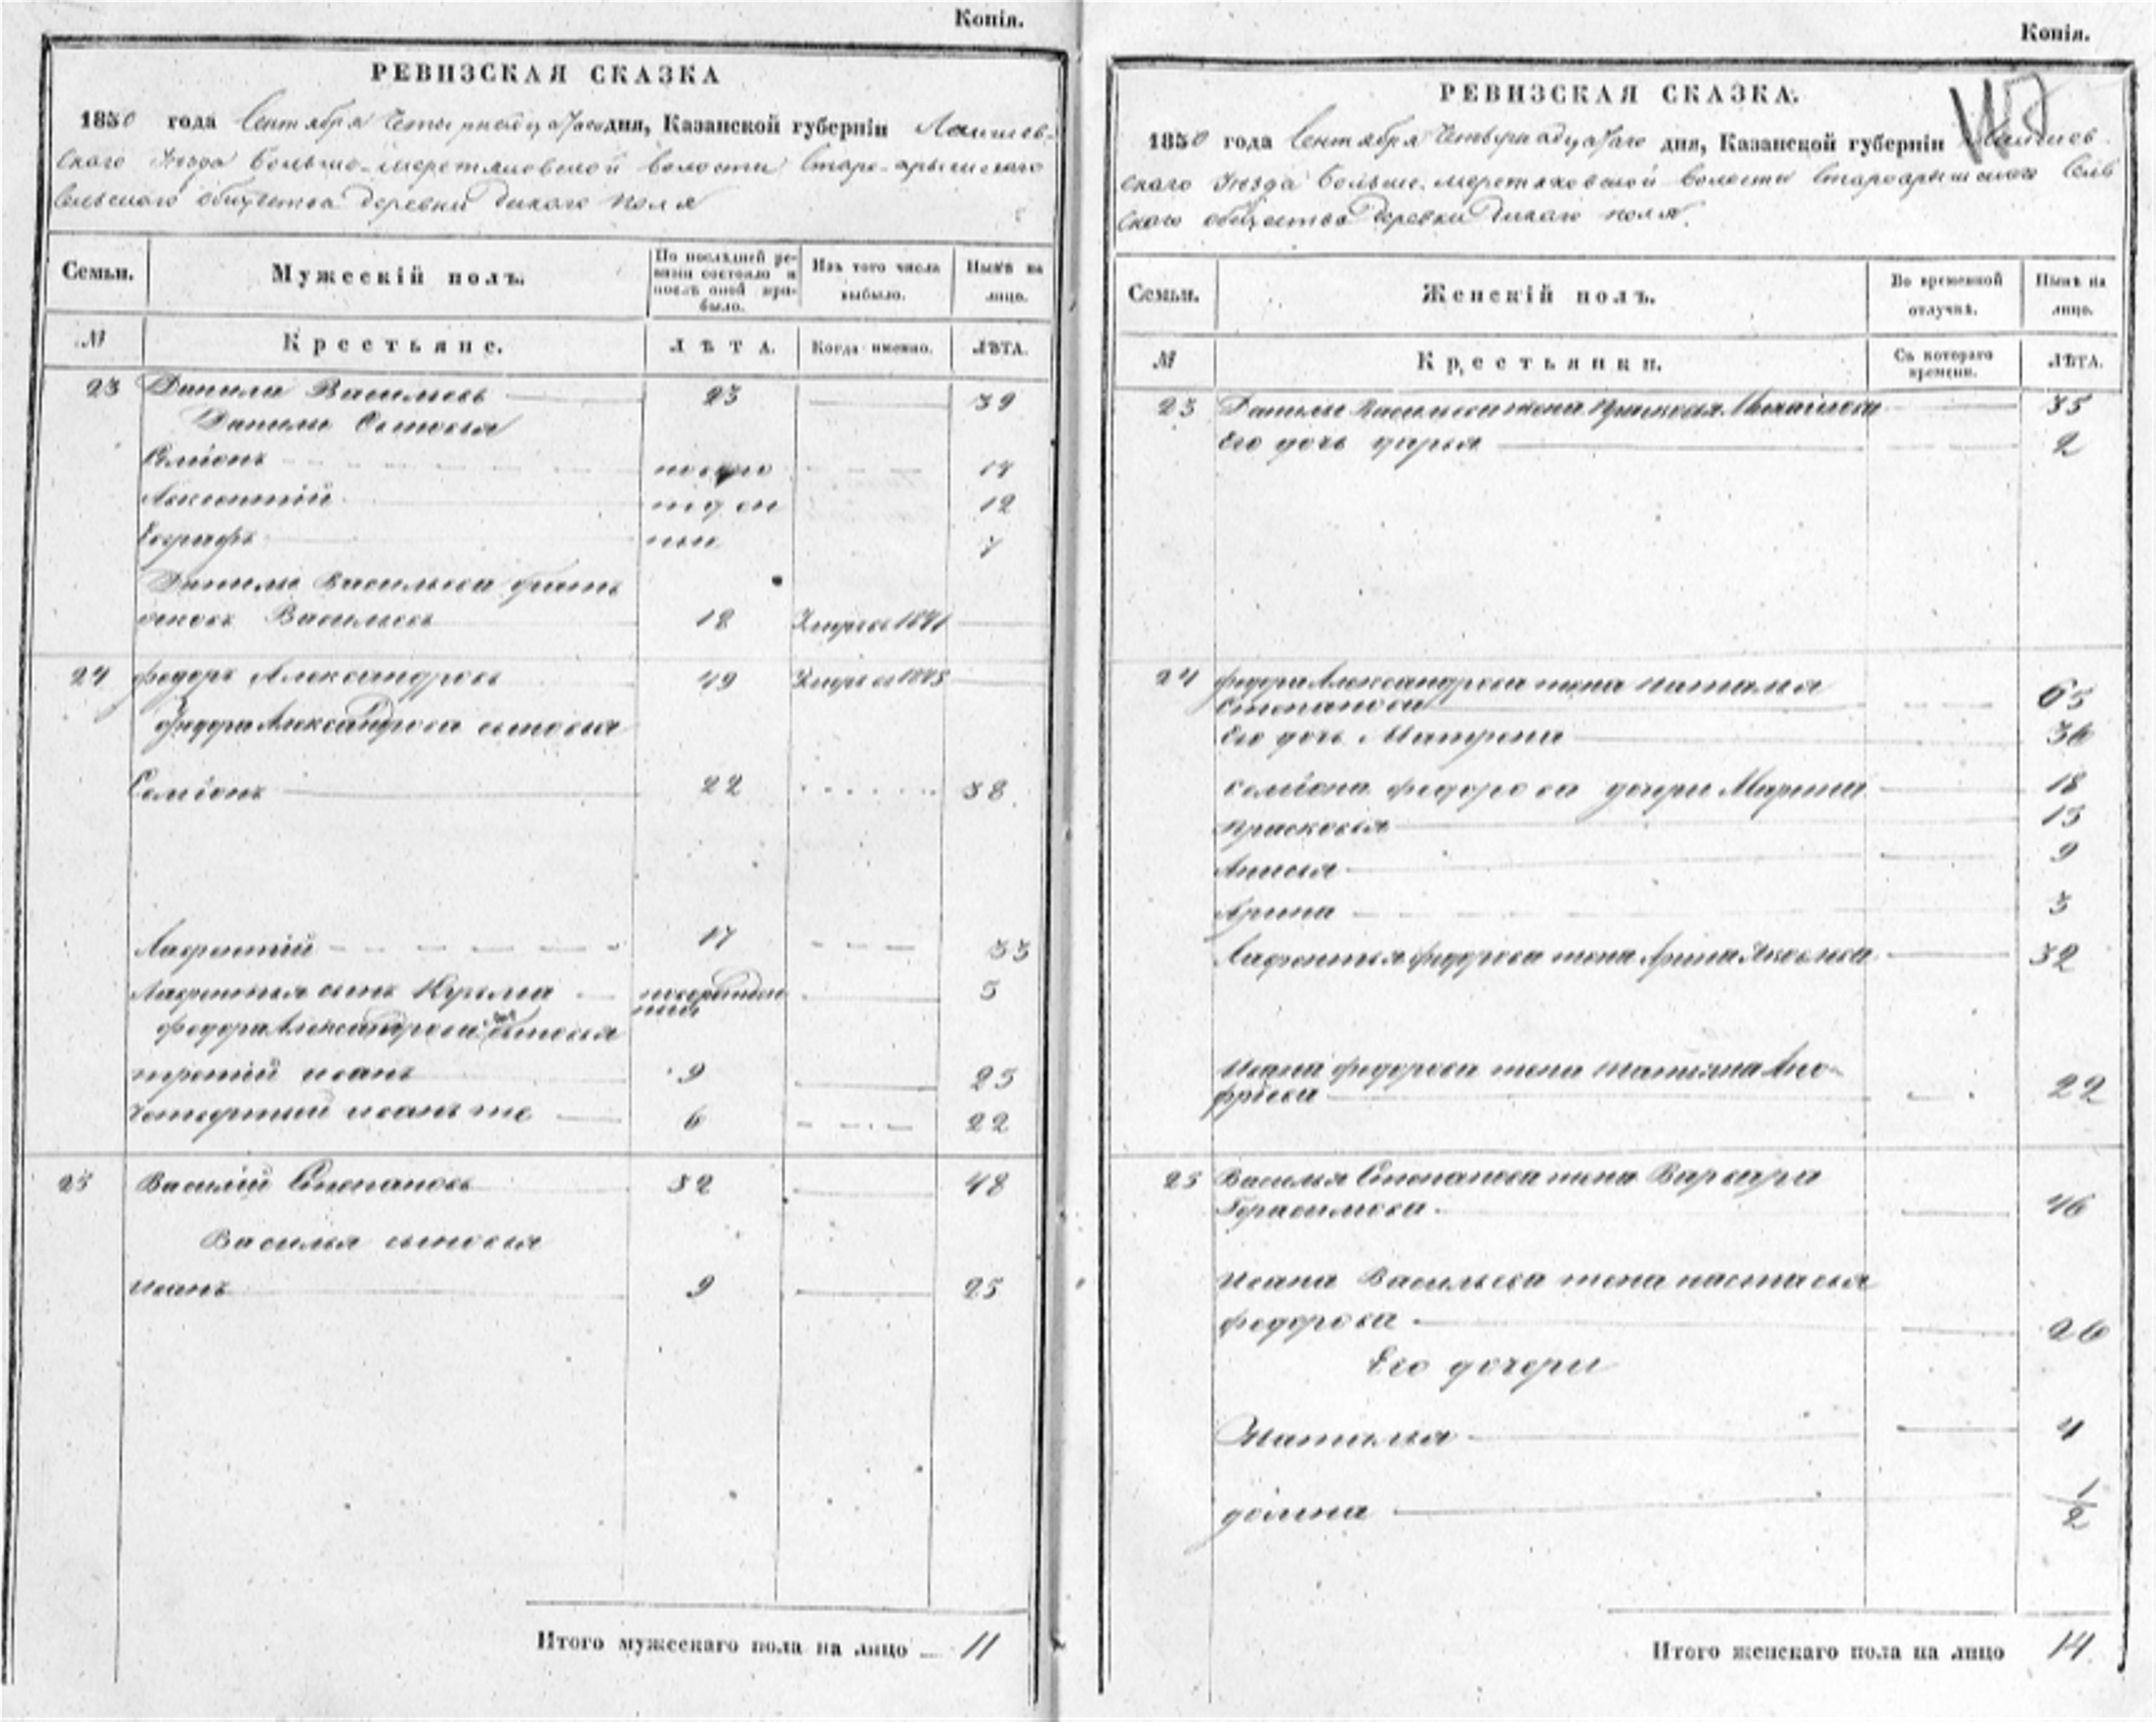 Копія.
РЕВИЗСКАЯ СКАЗКА
1850 года Сентября Четырнадцатаго дня, Казанской губерніи Лаишев-
скаго Уезда Больше-меретяковской волости Старо-арышскаго
Сельскаго общества деревни дикаго поля
Семьи. Мужескій полъ. По послѣдней ревизіи состояло и послѣ оной прибыло. Изъ того числа выбыло. Нынѣ на лицо.
№ Крестьяне. ЛѢТА. Когда именно. ЛѢТА.
23 Данила Васильевъ 23 39
Данилы Сыновья
Семіонъ после 14
Аксентій рожден 12
Евграфъ ныи 7
Данилы Васильева братъ
Васильевъ 18 Умре въ 1841
24 федоръ Александровъ 49 Умре въ 1845
федора Александрова сыновья
Семіонъ 22 38
Лаврентій 17 33
Лаврентья сынъ Кузьма 5
федора Александрова сыновья
третій иванъ 9 25
Четвертый иванъ же 6 22
25 Василій Степановъ 32 48
Василья сыновья
иванъ 9 25
Итого мужескаго пола на лицо 11
Копія.
РЕВИЗСКАЯ СКАЗКА.
1850 года Сентября Четырнадцатаго дня, Казанской губерніи Лаишев-
скаго Уезда Больше-меретяковской волости Староарышскаго Сель
скаго общества деревни дикаго поля.
Семьи. Женскій полъ. Во временной отлучкѣ. Нынѣ на лицо.
№ Крестьянки. Съ котораго времени. ЛѢТА.
23 Данилы Васильева жена Прасковья Михайлова 35
Его дочь дарья 2
24 федора Александрова жена наталья
Степанова 65
Его дочь Матрена 36
Семіона федорова дочери Марина 18
прасковья 15
Анисья 9
Арина 3
Лаврентья федорова жена Арина Яковлева 32
Ивана федорова жена татьяна Ано-
фріева 22
25 Василья Степанова жена Варвара
Герасимова 46
ивана Васильева жена настасья
федорова 26
Его дочери
Наталья 4
домна 1/2
Итого женскаго пола на лицо 14